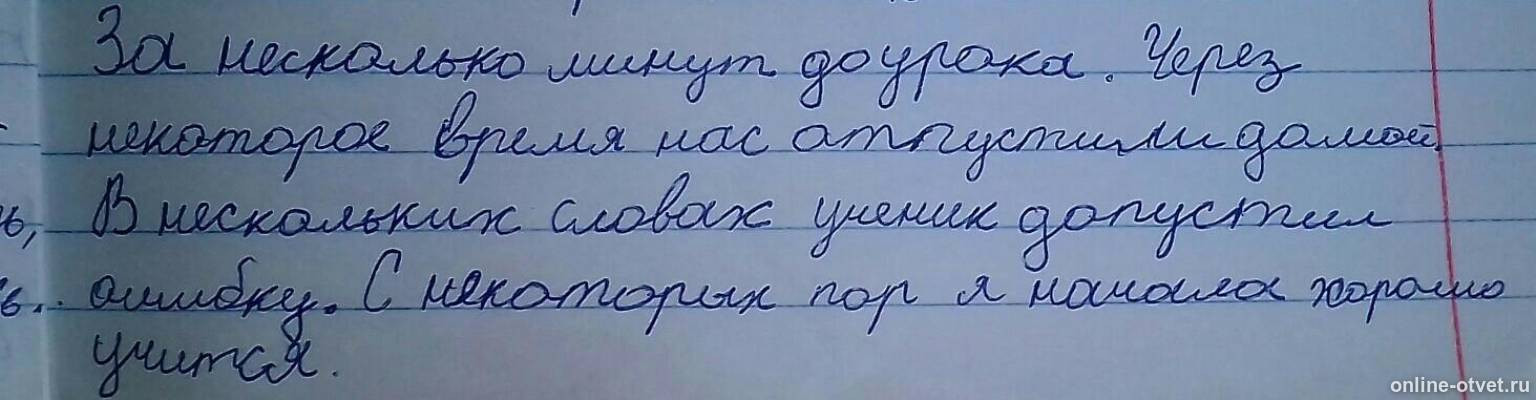 За несколько минут до урока. Через
некоторое время нас отпустили домой.
В нескольких словах ученик допустил
ь, ошибку. С некоторых пор я начала хорошо
учится.
online-otvet.ru